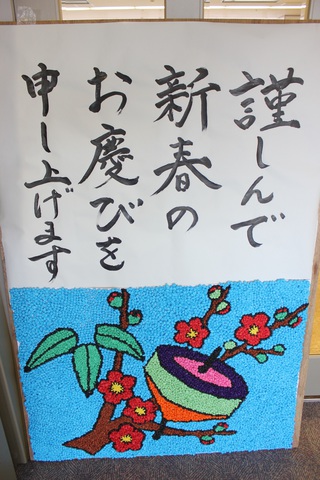 謹しんで
新春の
お慶びを
申し上げます